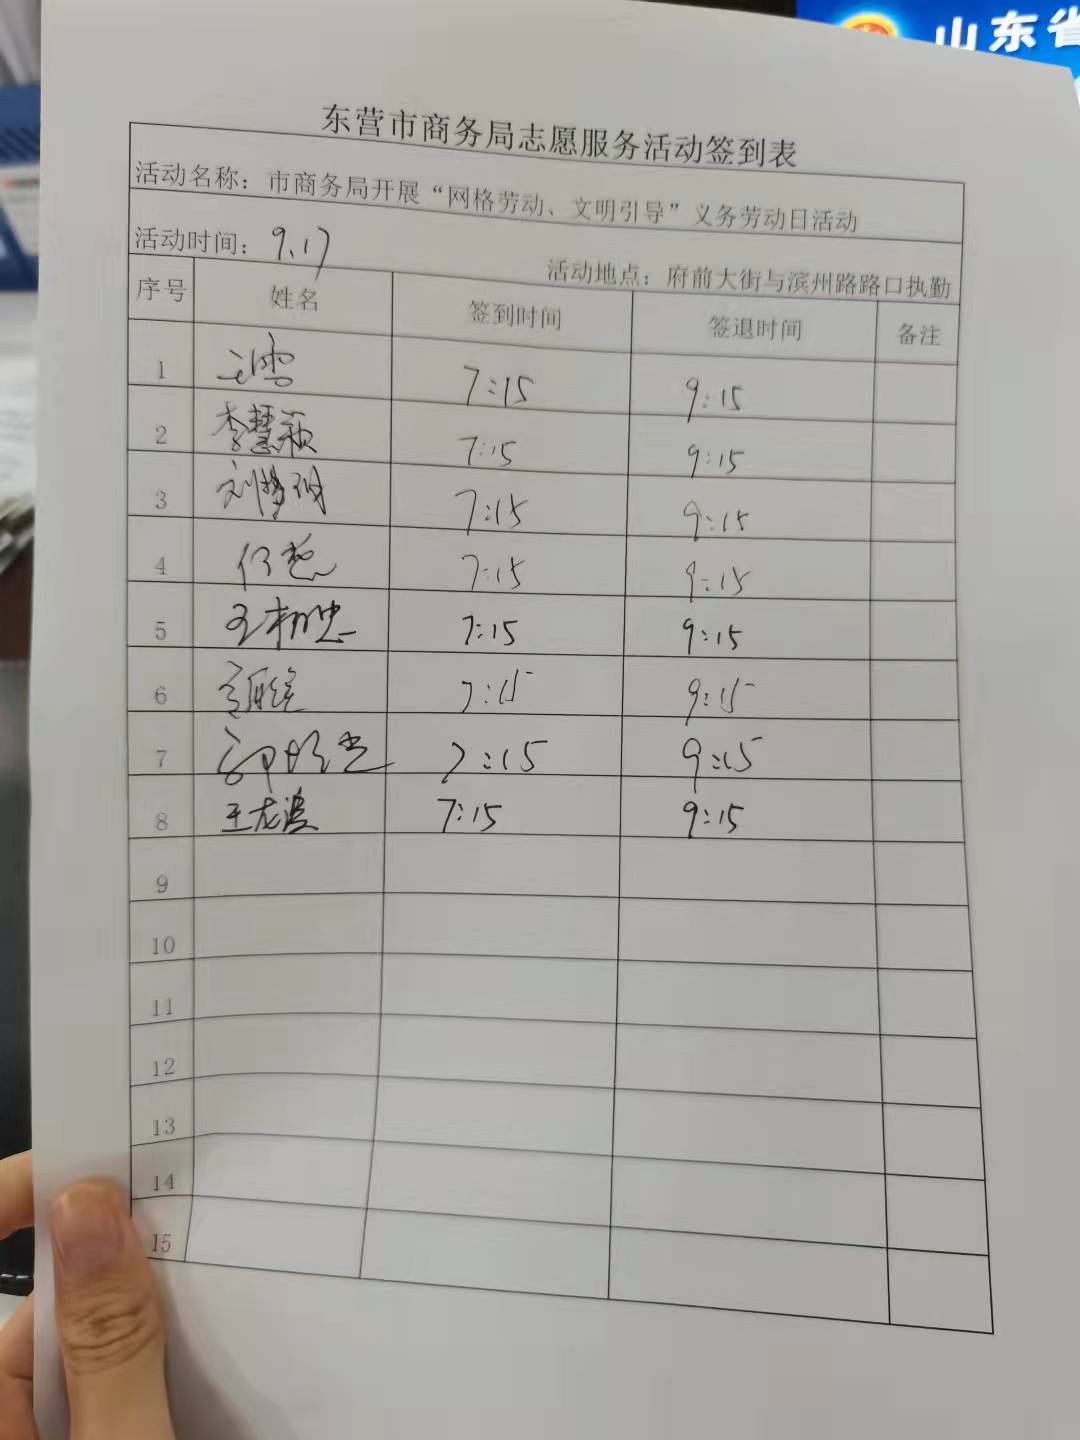 山东省
东营市商务局志愿服务活动签到表
活动名称：市商务局开展“网格劳动、文明引导”义务劳动日活动
活动时间：9.17 活动地点：府前大街与滨州路路口执勤
序号 姓名 签到时间 签退时间 备注
1 王雪 7:15 9:15
2 李慧颖 7:15 9:15
3 7:15 9:15
4 7:15 9:15
5 7:15 9:15
6 7:15 9:15
7 7:15 9:15
8 王龙波 7:15 9:15
9
10
11
12
13
14
15